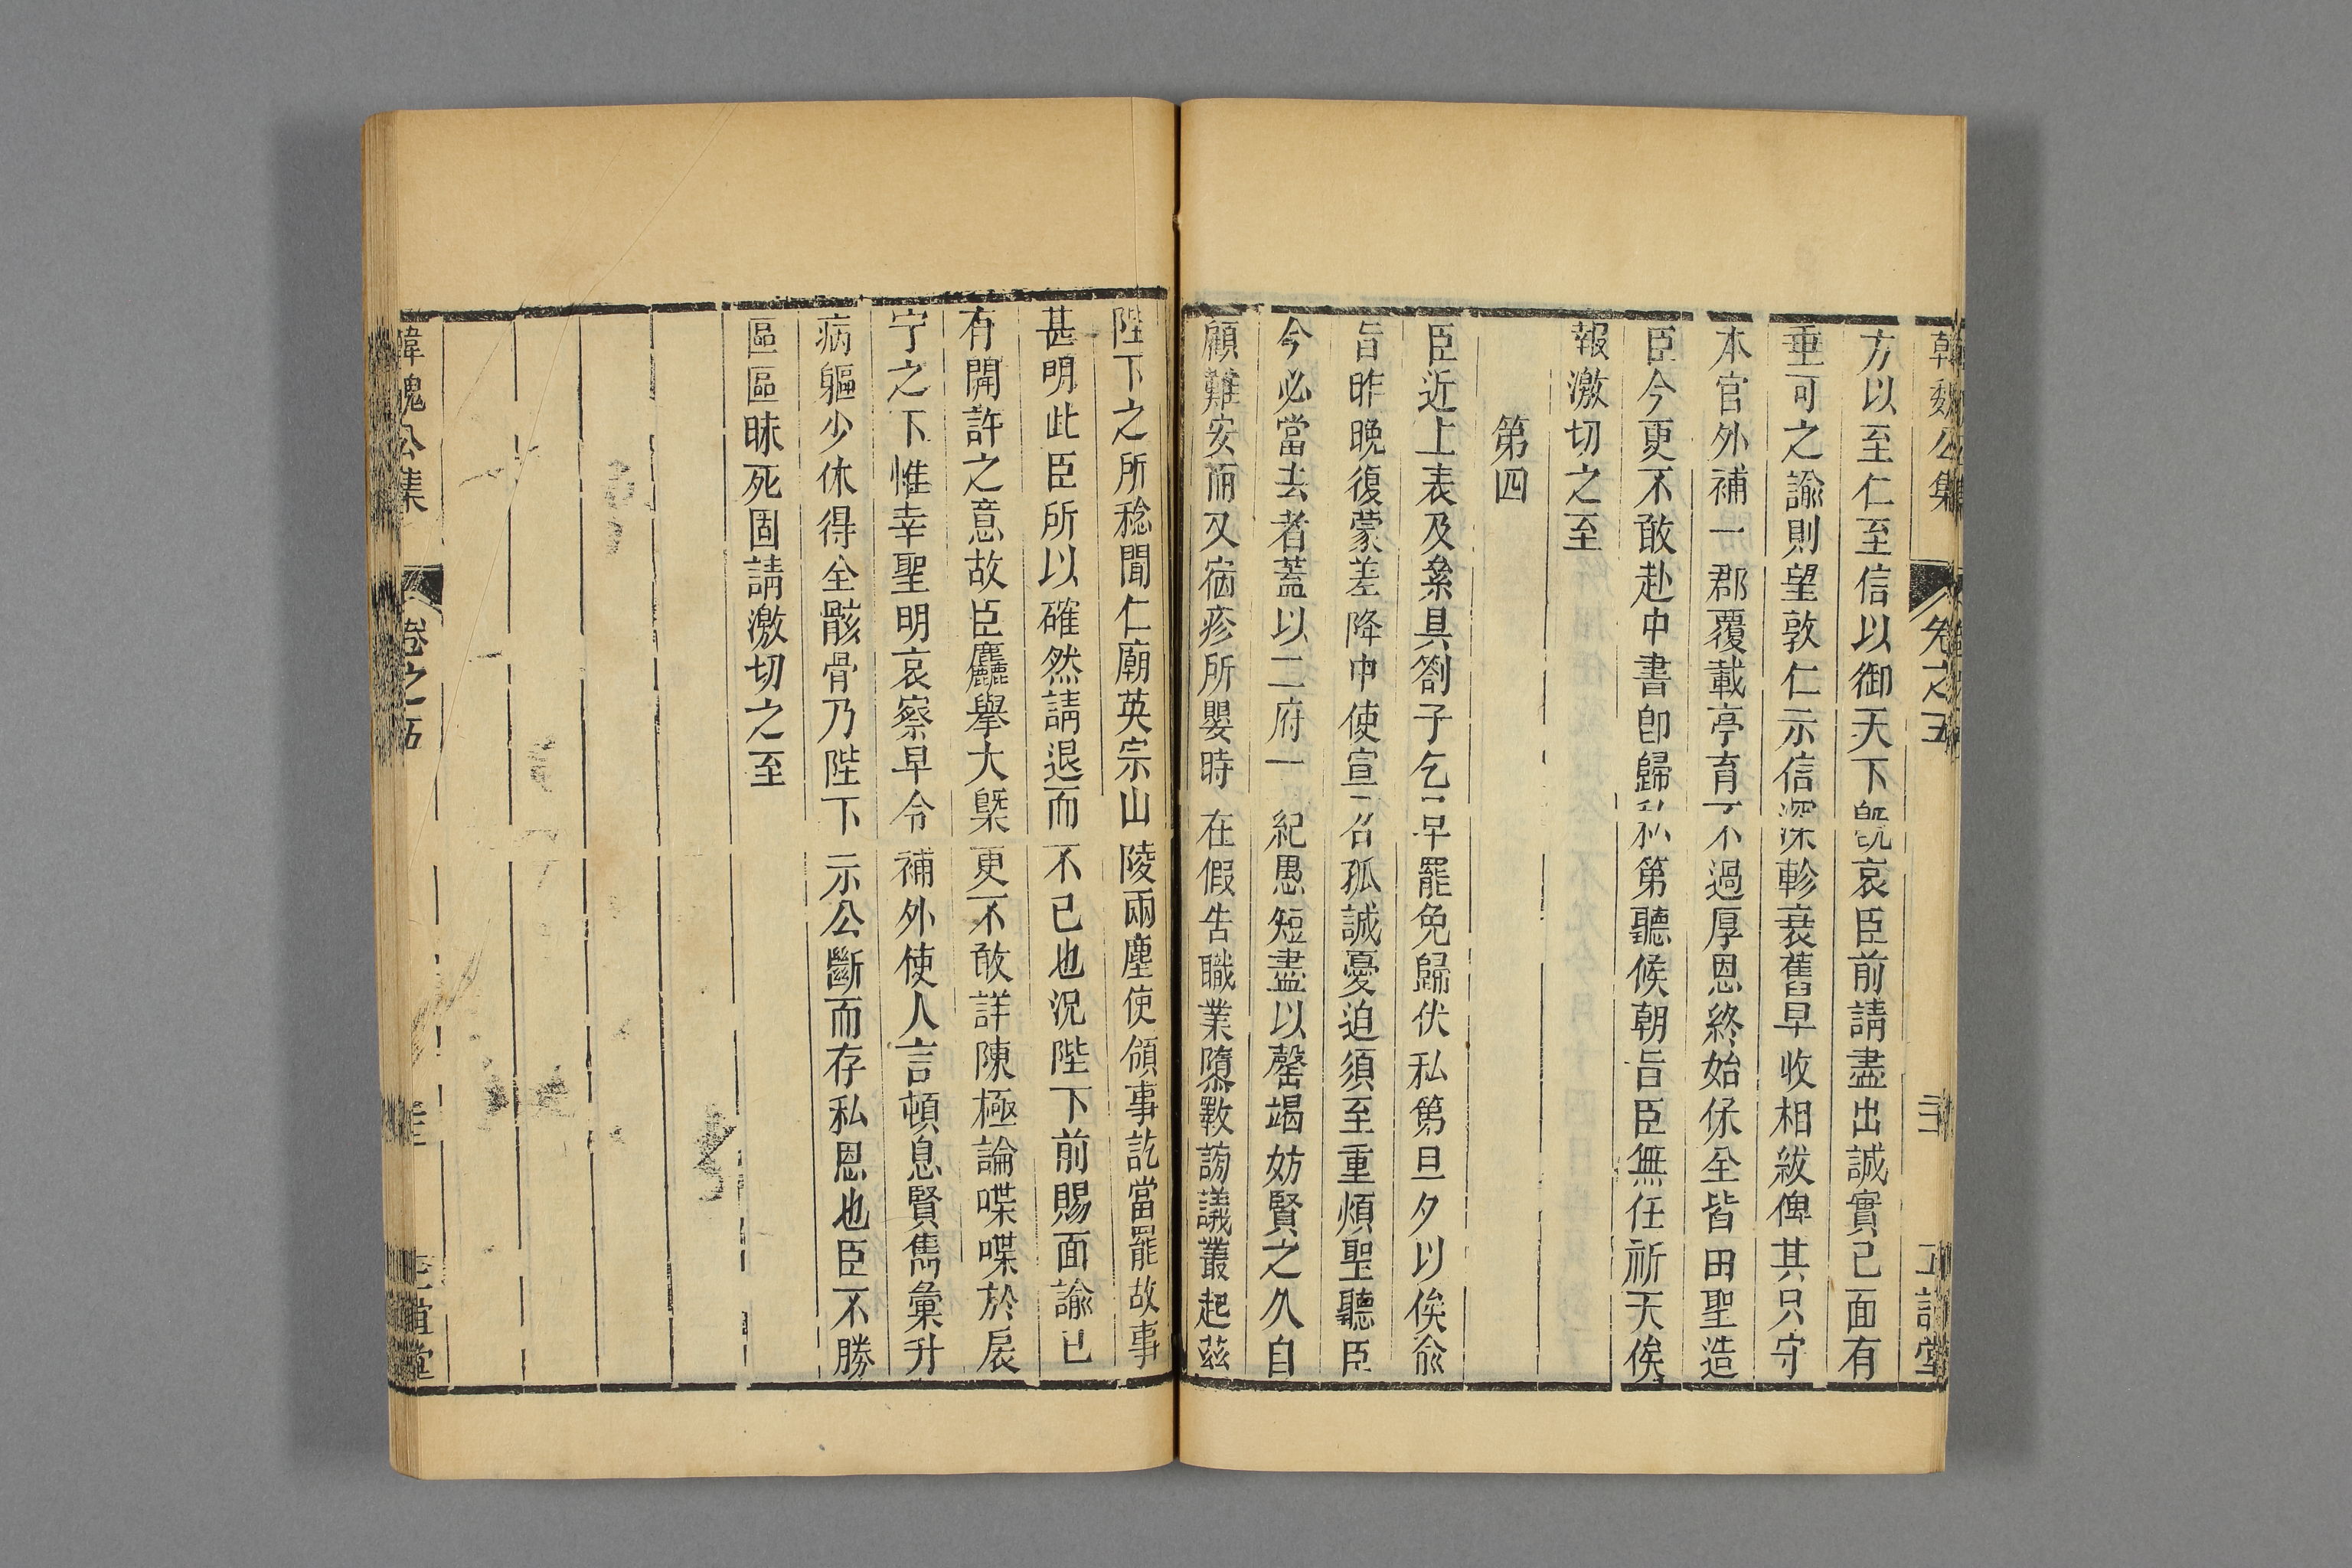 韓魏公集 卷之五 正誼堂
方以至仁至信以御天下旣哀臣前請盡出誠實已面有
垂可之諭則望敦仁示信深軫衰舊早收相紱俾其只守
本官外補一郡覆載亭育不過厚恩終始保全皆由聖造
臣今更不敢赴中書卽歸私第聽候朝旨臣無任祈天俟
報激切之至
第四
臣近上表及絫具劄子乞早罷免歸伏私第旦夕以俟兪
旨昨晚復蒙差降中使宣召孤誠憂迫須至重煩聖聽臣
今必當去者蓋以二府一紀愚短盡以罄竭妨賢之久自
顧難安而又宿疹所嬰時在假告職業隳斁謗議叢起茲
陛下之所稔聞仁廟英宗山陵兩塵使領事訖當罷故事
甚明此臣所以確然請退而不已也況陛下前賜面諭已
有開許之意故臣麤舉大槩更不敢詳陳極論喋喋於扆
宁之下惟幸聖明哀察早令補外使人言頓息賢雋彙升
病軀少休得全骸骨乃陛下示公斷而存私恩也臣不勝
區區昧死固請激切之至
韓魏公集 卷之五 正誼堂